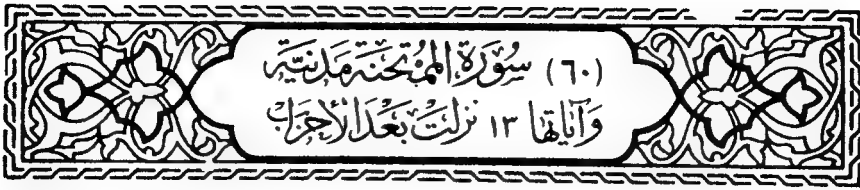 (٦٠) سُورَة الممتَحنَة مَدنيَّة
وَآيَاتها ١٣ نزلَتْ بَعْدَ الأحزاب